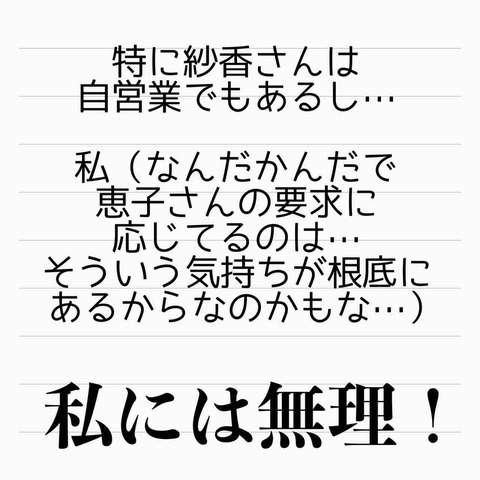 特に紗香さんは
自営業でもあるし…
私（なんだかんだで
恵子さんの要求に
応じてるのは…
そういう気持ちが根底に
あるからなのかもな…）
私には無理！